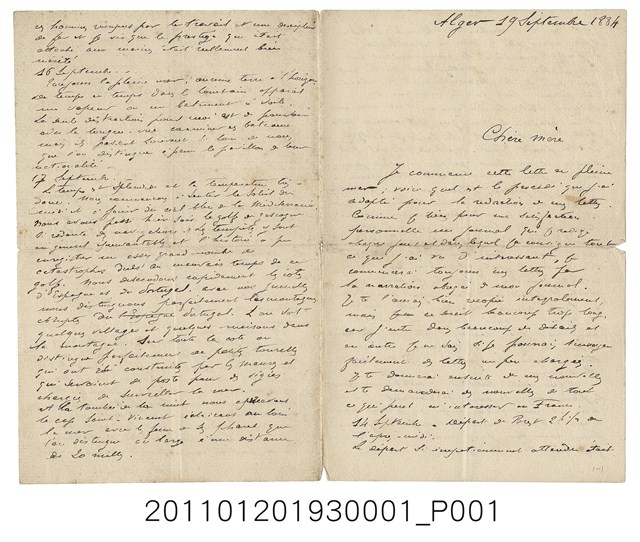 Alger 19 Septembre 1884
Chère mère
Je commence cette lettre en pleine
mer; voici quel est le procédé que j'ai
adopté pour la rédaction de mes lettres.
Comme je tiens pour ma satisfaction
personnelle un journal que je rédige
chaque jour et dans lequel je consigne tout
ce que j'ai vu d'intéressant je
commencerai toujours mes lettres par
la narration de mon journal.
Je te l'aurais bien recopié intégralement,
mais ce serait beaucoup trop long,
car j'entre dans beaucoup de détails et
en outre je ne sais si je pourrais t'envoyer
facilement des lettres un peu chargées.
Je te donnerai ensuite de mes nouvelles
et te demanderai des nouvelles de tout
ce qui peut m'intéresser en France.
14 Septembre Départ de Brest 2 h 1/2 de
l'après-midi.
Le départ si impatiemment attendu était
ces hommes rompus par le travail et une discipline
de fer et je vis que le prestige qui était
attaché aux marins était réellement bien
mérité
16 Septembre
Toujours la pleine mer, aucune terre à l'horizon
De temps en temps dans le lointain apparaît
une vapeur ou un bâtiment à voile.
La seule distraction pour moi est de pouvoir
avec la longue-vue examiner ces bateaux
mais ils passent souvent si loin de nous
que l'on distingue à peine le pavillon de leur
nationalité
17 Septembre
Le temps est splendide et la température très
douce. Nous commençons à sentir le soleil du
midi et à jouir du ciel bleu de la Méditerranée
Nous avons passé hier soir le golfe de gascogne
si redouté des navigateurs; les tempêtes y sont
en général fréquentes et l'histoire a pu
enregistrer un assez grand nombre de
catastrophes dues au mauvais temps de ce
golfe. Nous descendons rapidement les côtes
d'Espagne et du Portugal. avec une jumelle
nous distinguons parfaitement les montagnes
abruptes du Portugal. L'on voit
quelques villages et quelques maisons dans
la montagne. Sur toute la côte on
distingue parfaitement de petites tourelles
qui ont été construites par les maures et
qui servaient de poste pour des vigies
chargées de surveiller la mer.
Et à la tombée de la nuit nous apercevons
le cap Saint-Vincent éclairant au loin
la mer avec le feu de ses phares que
l'on distingue au large à une distance
de 20 milles.
(-1-)
201101201930001_P001